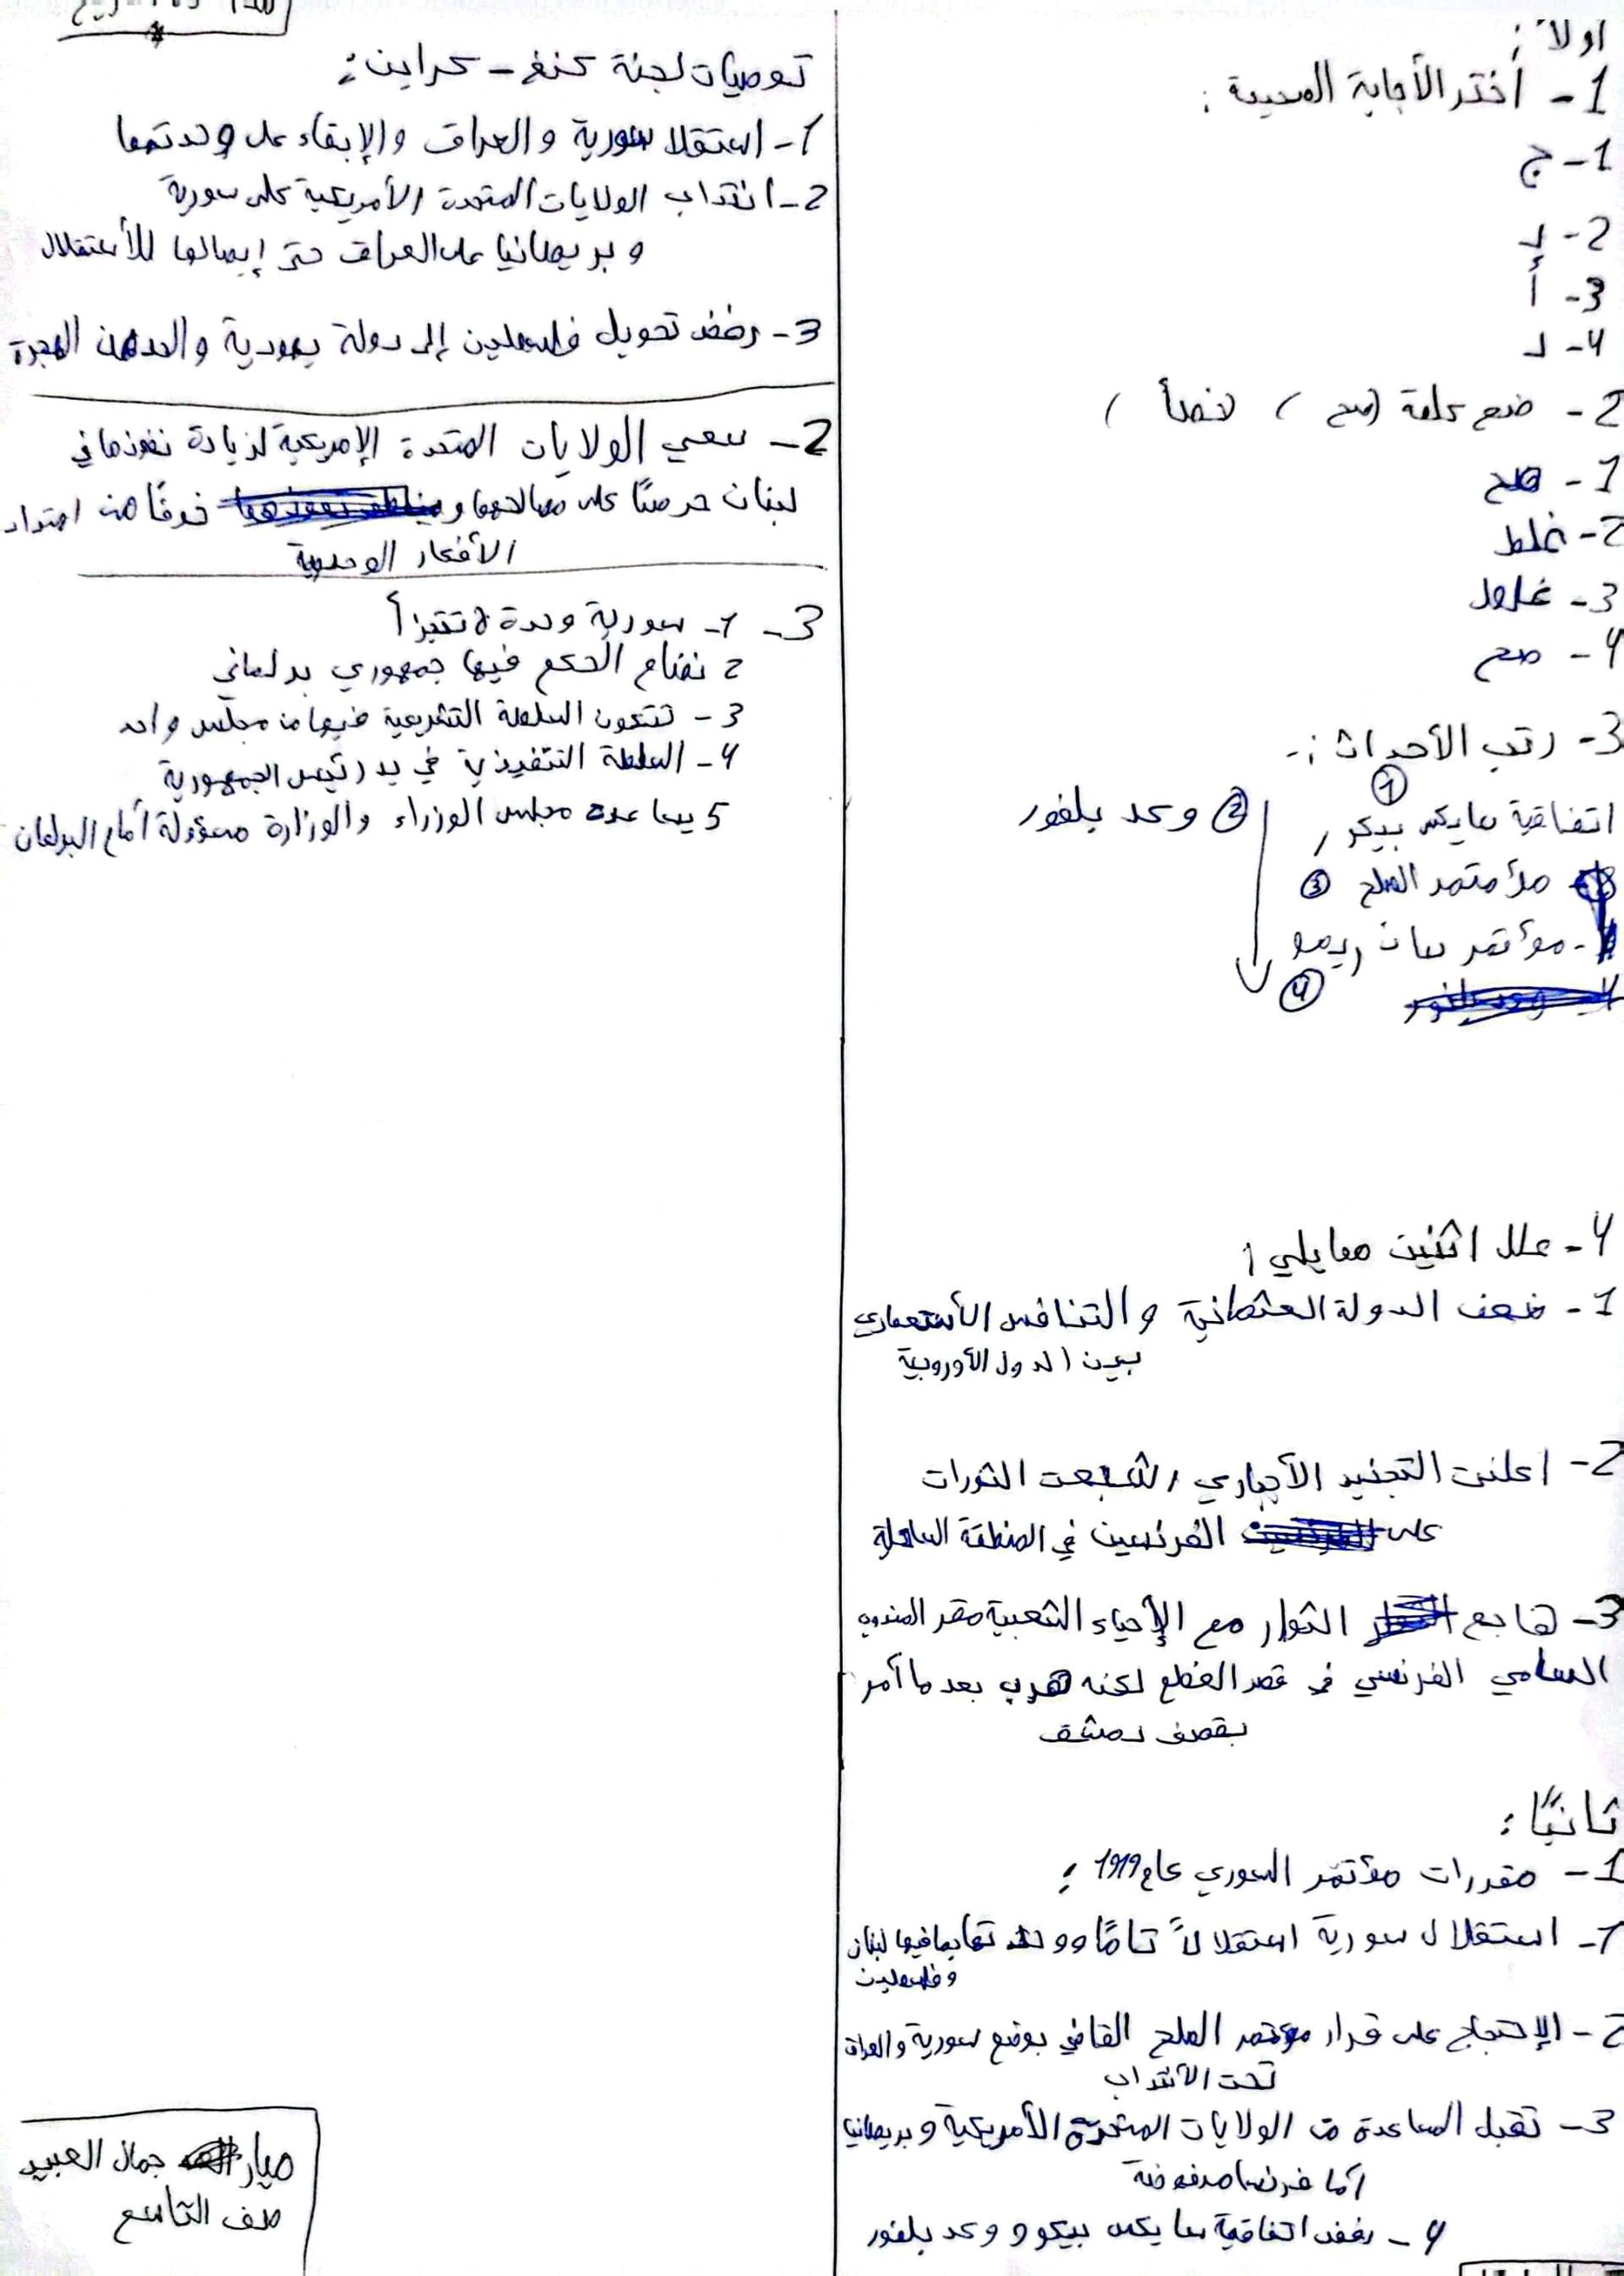 اولاً :
1- أختر الأجابة الصحيحة :
1- ج
2- د
3- أ
4- د
2- ضع كلمة (صح ) (خطأ )
1- صح
2- غلط
3- غلط
4- صح
3- رتب الأحداث :-
①
اتفاقية سايكس بيكو
② وعد بلفور
مؤتمر الصلح ③
- مؤتمر سان ريمو
④
4- علل اثنين ممايلي :
1- ضعف الدولة العثمانية والتنافس الأستعماري
بين الدول الأوروبية
2- اعلنت التجنيد الأجباري , شبعت الثورات
على الفرنسين في المنطقة الساحلية
3- هاجم الثوار مع الإحياء الشعبية مقر المندوب
السامي الفرنسي في قصر العظم لكنه هرب بعد ما آمر
بقصف دمشق
ثانيًا :
1- مقررات مؤتمر السوري عام 1919 :
1- استقلال سورية استقلالاً تامًا ووحدتها بمافيها لبنان
وفلسطين
2- الإحتجاج على قرار مؤتمر الصلح القاضي بوضع سورية والعراق
تحت الأنتداب
3- تقبل المساعدة من الولايات المتحدة الأمريكية وبريطانيا
آما فرنسا مرفوضة
4- رفض اتفاقية سايكس بيكو و وعد بلفور
توصيات لجنة كنغ - كراين :
1- استقلا سورية والعراق والإبقاء على وحدتهما
2- انتداب الولايات المتحدة الأمريكية على سورية
و بريطانيا على العراق حتى إيصالها للأستقلال
3- رفض تحويل فلسطين إلى دولة يهودية والحد من الهجرة
2- سعي الولايات المتحدة الإمريكية لزيادة نفوذها في
لبنان حرصًا على مصالحها و خوفًا من امتداد
الأفكار الوحدوية
3- 1- سورية وحدة لا تتجزأ
2 نظام الحكم فيها جمهوري برلماني
3- تتكون السلطة التشريعية فيها من مجلس واحد
4- السلطة التنفيذية في يد رئيس الجمهورية
5 يساعده مجلس الوزراء والوزارة مسؤولة أمام البرلمان
ميار جمال العبيد
صف التاسع